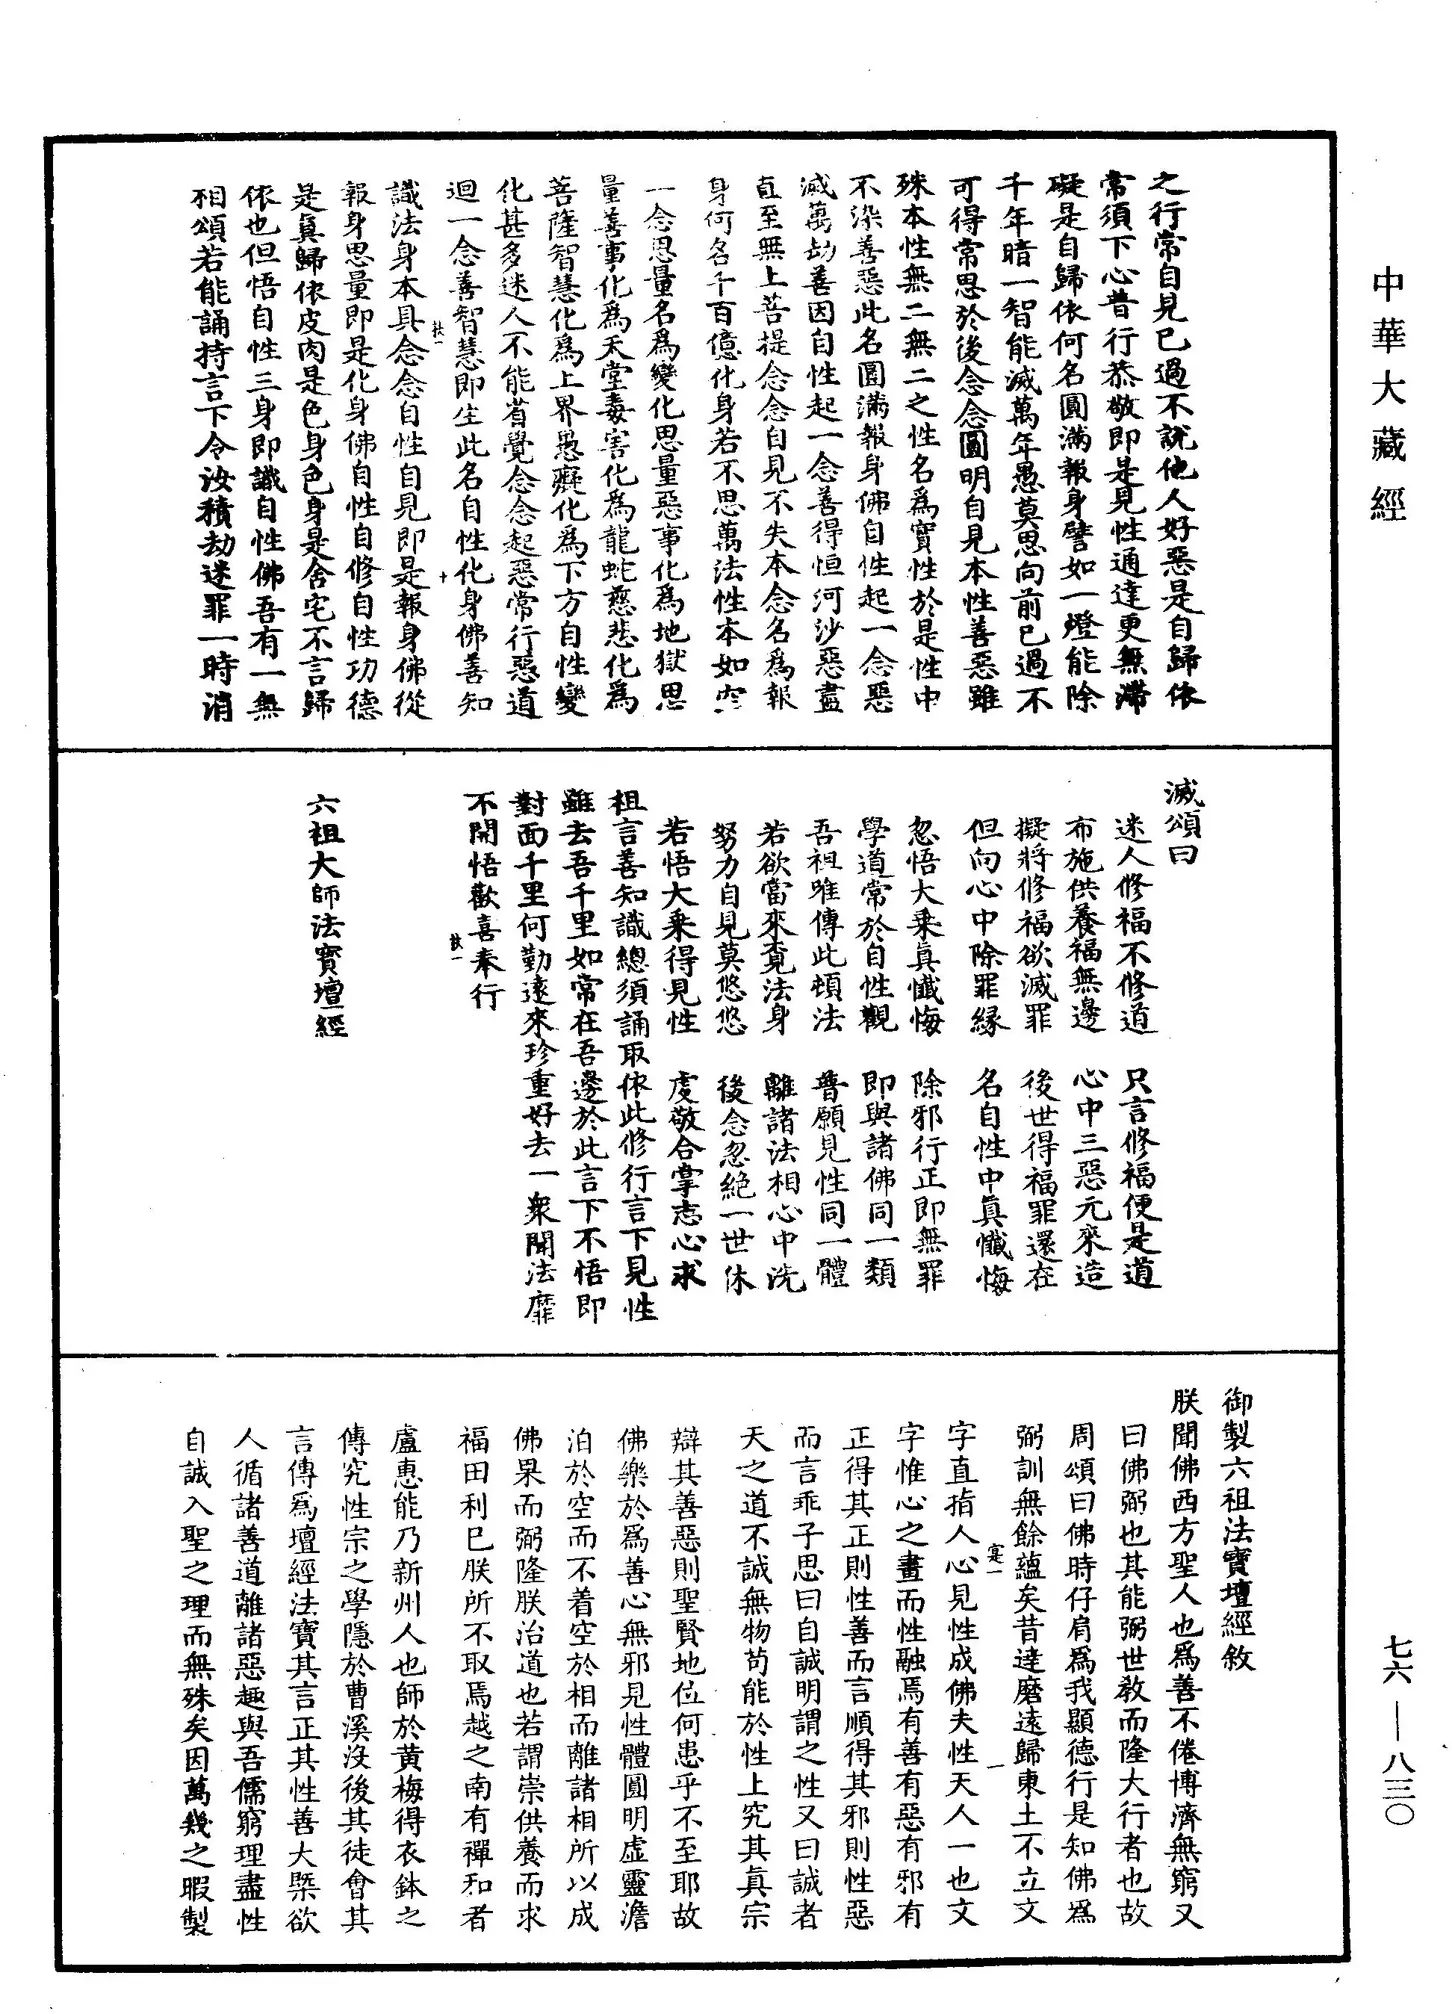 中華大藏經
之行常自見已過不說他人好惡是自歸依
常須下心普行恭敬即是見性通達更無滯
礙是自歸依何名圓滿報身譬如一燈能除
千年暗一智能滅萬年愚莫思向前已過不
可得常思於後念念圓明自見本性善惡雖
殊本性無二無二之性名為實性於是性中
不染善惡此名圓滿報身佛自性起一念惡
滅萬劫善因自性起一念善得恒河沙惡盡
直至無上菩提念念自見不失本念名為報
身何名千百億化身若不思萬法性本如空
一念思量名為變化思量惡事化為地獄思
量善事化為天堂毒害化為龍蛇慈悲化為
菩薩智慧化為上界愚癡化為下方自性變
化甚多迷人不能省覺念念起惡常行惡道
迴一念善智慧即生此名自性化身佛善知
扶一
十
識法身本具念念自性自見即是報身佛從
報身思量即是化身佛自性自修自性功德
是真歸依皮肉是色身色身是舍宅不言歸
依也但悟自性三身即識自性佛吾有一無
相頌若能誦持言下令汝積劫迷罪一時消
滅頌曰
迷人修福不修道 只言修福便是道
布施供養福無邊 心中三惡元來造
擬將修福欲滅罪 後世得福罪還在
但向心中除罪緣 名自性中真懺悔
忽悟大乘真懺悔 除邪行正即無罪
學道常於自性觀 即與諸佛同一類
吾祖唯傳此頓法 普願見性同一體
若欲當來覔法身 離諸法相心中洗
努力自見莫悠悠 後念忽絕一世休
若悟大乘得見性 虔敬合掌志心求
祖言善知識總須誦取依此修行言下見性
雖去吾千里如常在吾邊於此言下不悟即
對面千里何勤遠來珍重好去一衆聞法靡
不開悟歡喜奉行
扶一
六祖大師法寶壇經
御製六祖法寶壇經敘
朕聞佛西方聖人也為善不倦博濟無窮又
曰佛弼也其能弼世教而隆大行者也故
周頌曰佛時仔肩為我顯德行是知佛為
弼訓無餘蘊矣昔達磨遠歸東土不立文
寔一
一
字直指人心見性成佛夫性天人一也文
字惟心之畫而性融焉有善有惡有邪有
正得其正則性善而言順得其邪則性惡
而言乖子思曰自誠明謂之性又曰誠者
天之道不誠無物苟能於性上究其真宗
辯其善惡則聖賢地位何患乎不至耶故
佛樂於為善心無邪見性體圓明虛靈澹
泊於空而不着空於相而離諸相所以成
佛果而弼隆朕治道也若謂崇供養而求
福田利已朕所不取焉越之南有禪和者
盧惠能乃新州人也師於黃梅得衣鉢之
傳究性宗之學隱於曹溪沒後其徒會其
言傳為壇經法寶其言正其性善大槩欲
人循諸善道離諸惡趣與吾儒窮理盡性
自誠入聖之理而無殊矣因萬幾之暇製
七六—八三〇